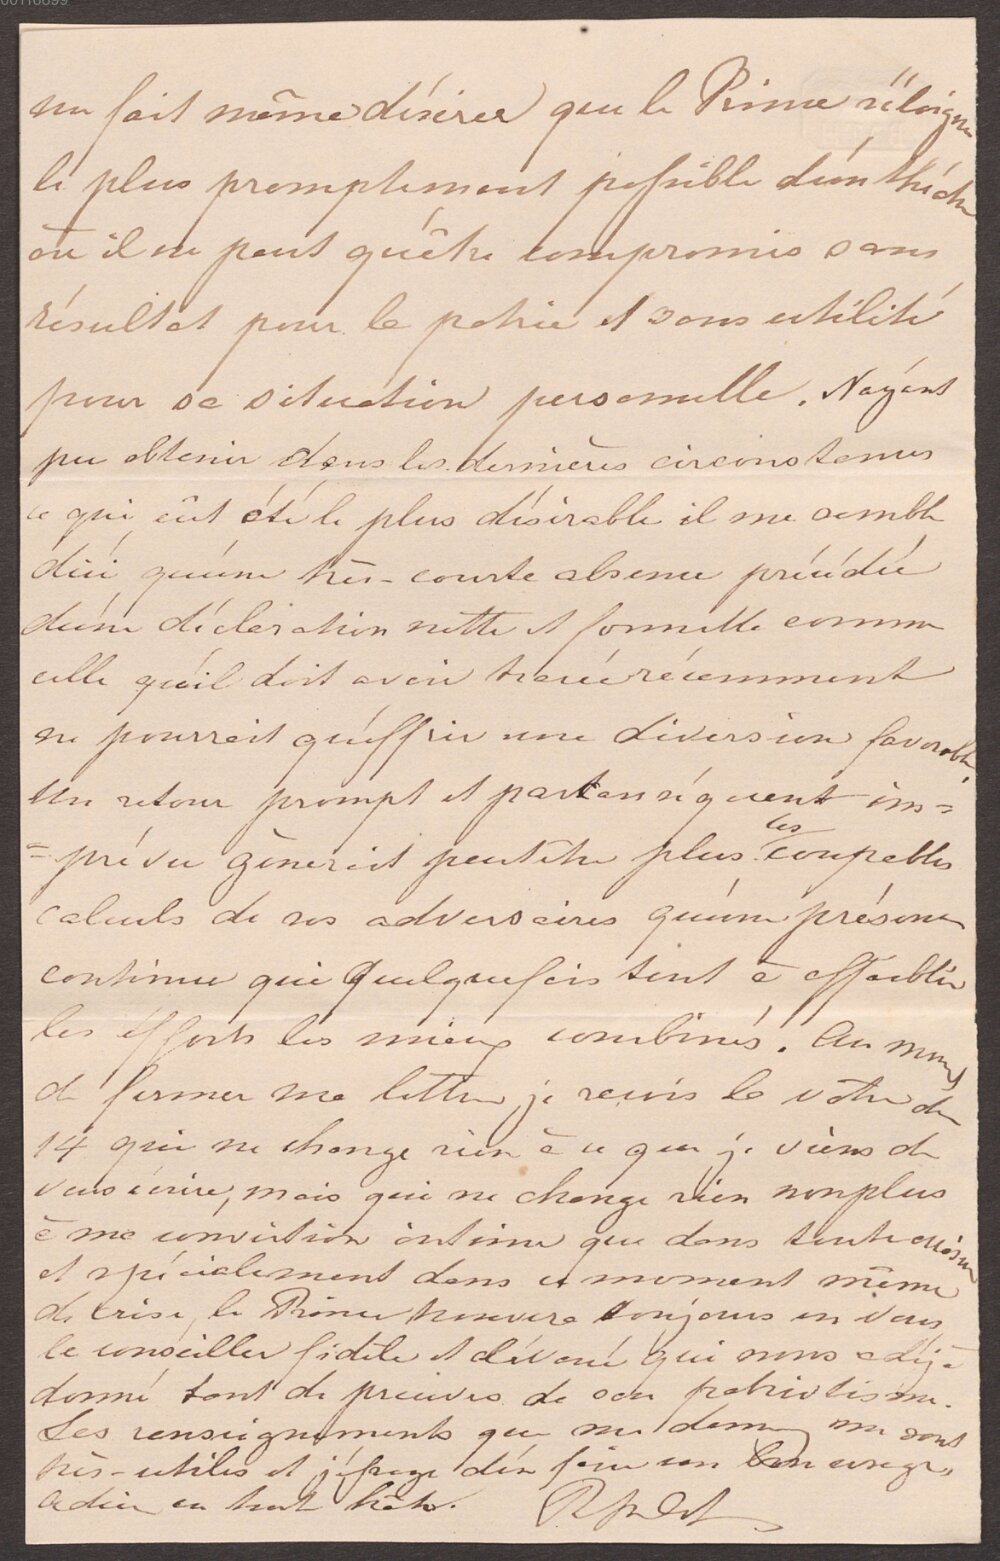 00116899
me fait même désirer que le Prince s'éloigne
le plus promptement possible d'un théâtre
où il ne peut qu'être compromis sans
résultat pour la patrie et sans utilité
pour sa situation personnelle. N'ayant
pu obtenir dans les dernières circonstances
ce qui eût été le plus désirable il me semble
d'ici qu'une très-courte absence précédée
d'une déclaration nette et formelle comme
celle qu'il doit avoir tracée récemment
ne pourrait qu'offrir une diversion favorable.
Un retour prompt et par conséquent im=
=prévu gênerait peutêtre plus les coupables
calculs de nos adversaires qu'une présence
continue qui quelquefois tend à affaiblir
les éfforts les mieux combinés. Au mom
de fermer ma lettre, je reçois la vôtre du
14 qui ne change rien à ce que je viens de
vous écrire, mais qui ne change rien nonplus
à ma conviction intime que dans toute occasion
et spécialement dans ce moment même
de crise, le Prince trouvera toujours en vous
le conseiller fidèle et dévoué qui nous a déjà
donné tant de preuves de son patriotisme.
Les renseignements que me donnez me sont
très-utiles et j'éspère d'en faire un bon usage.
adieu en toute hâte.